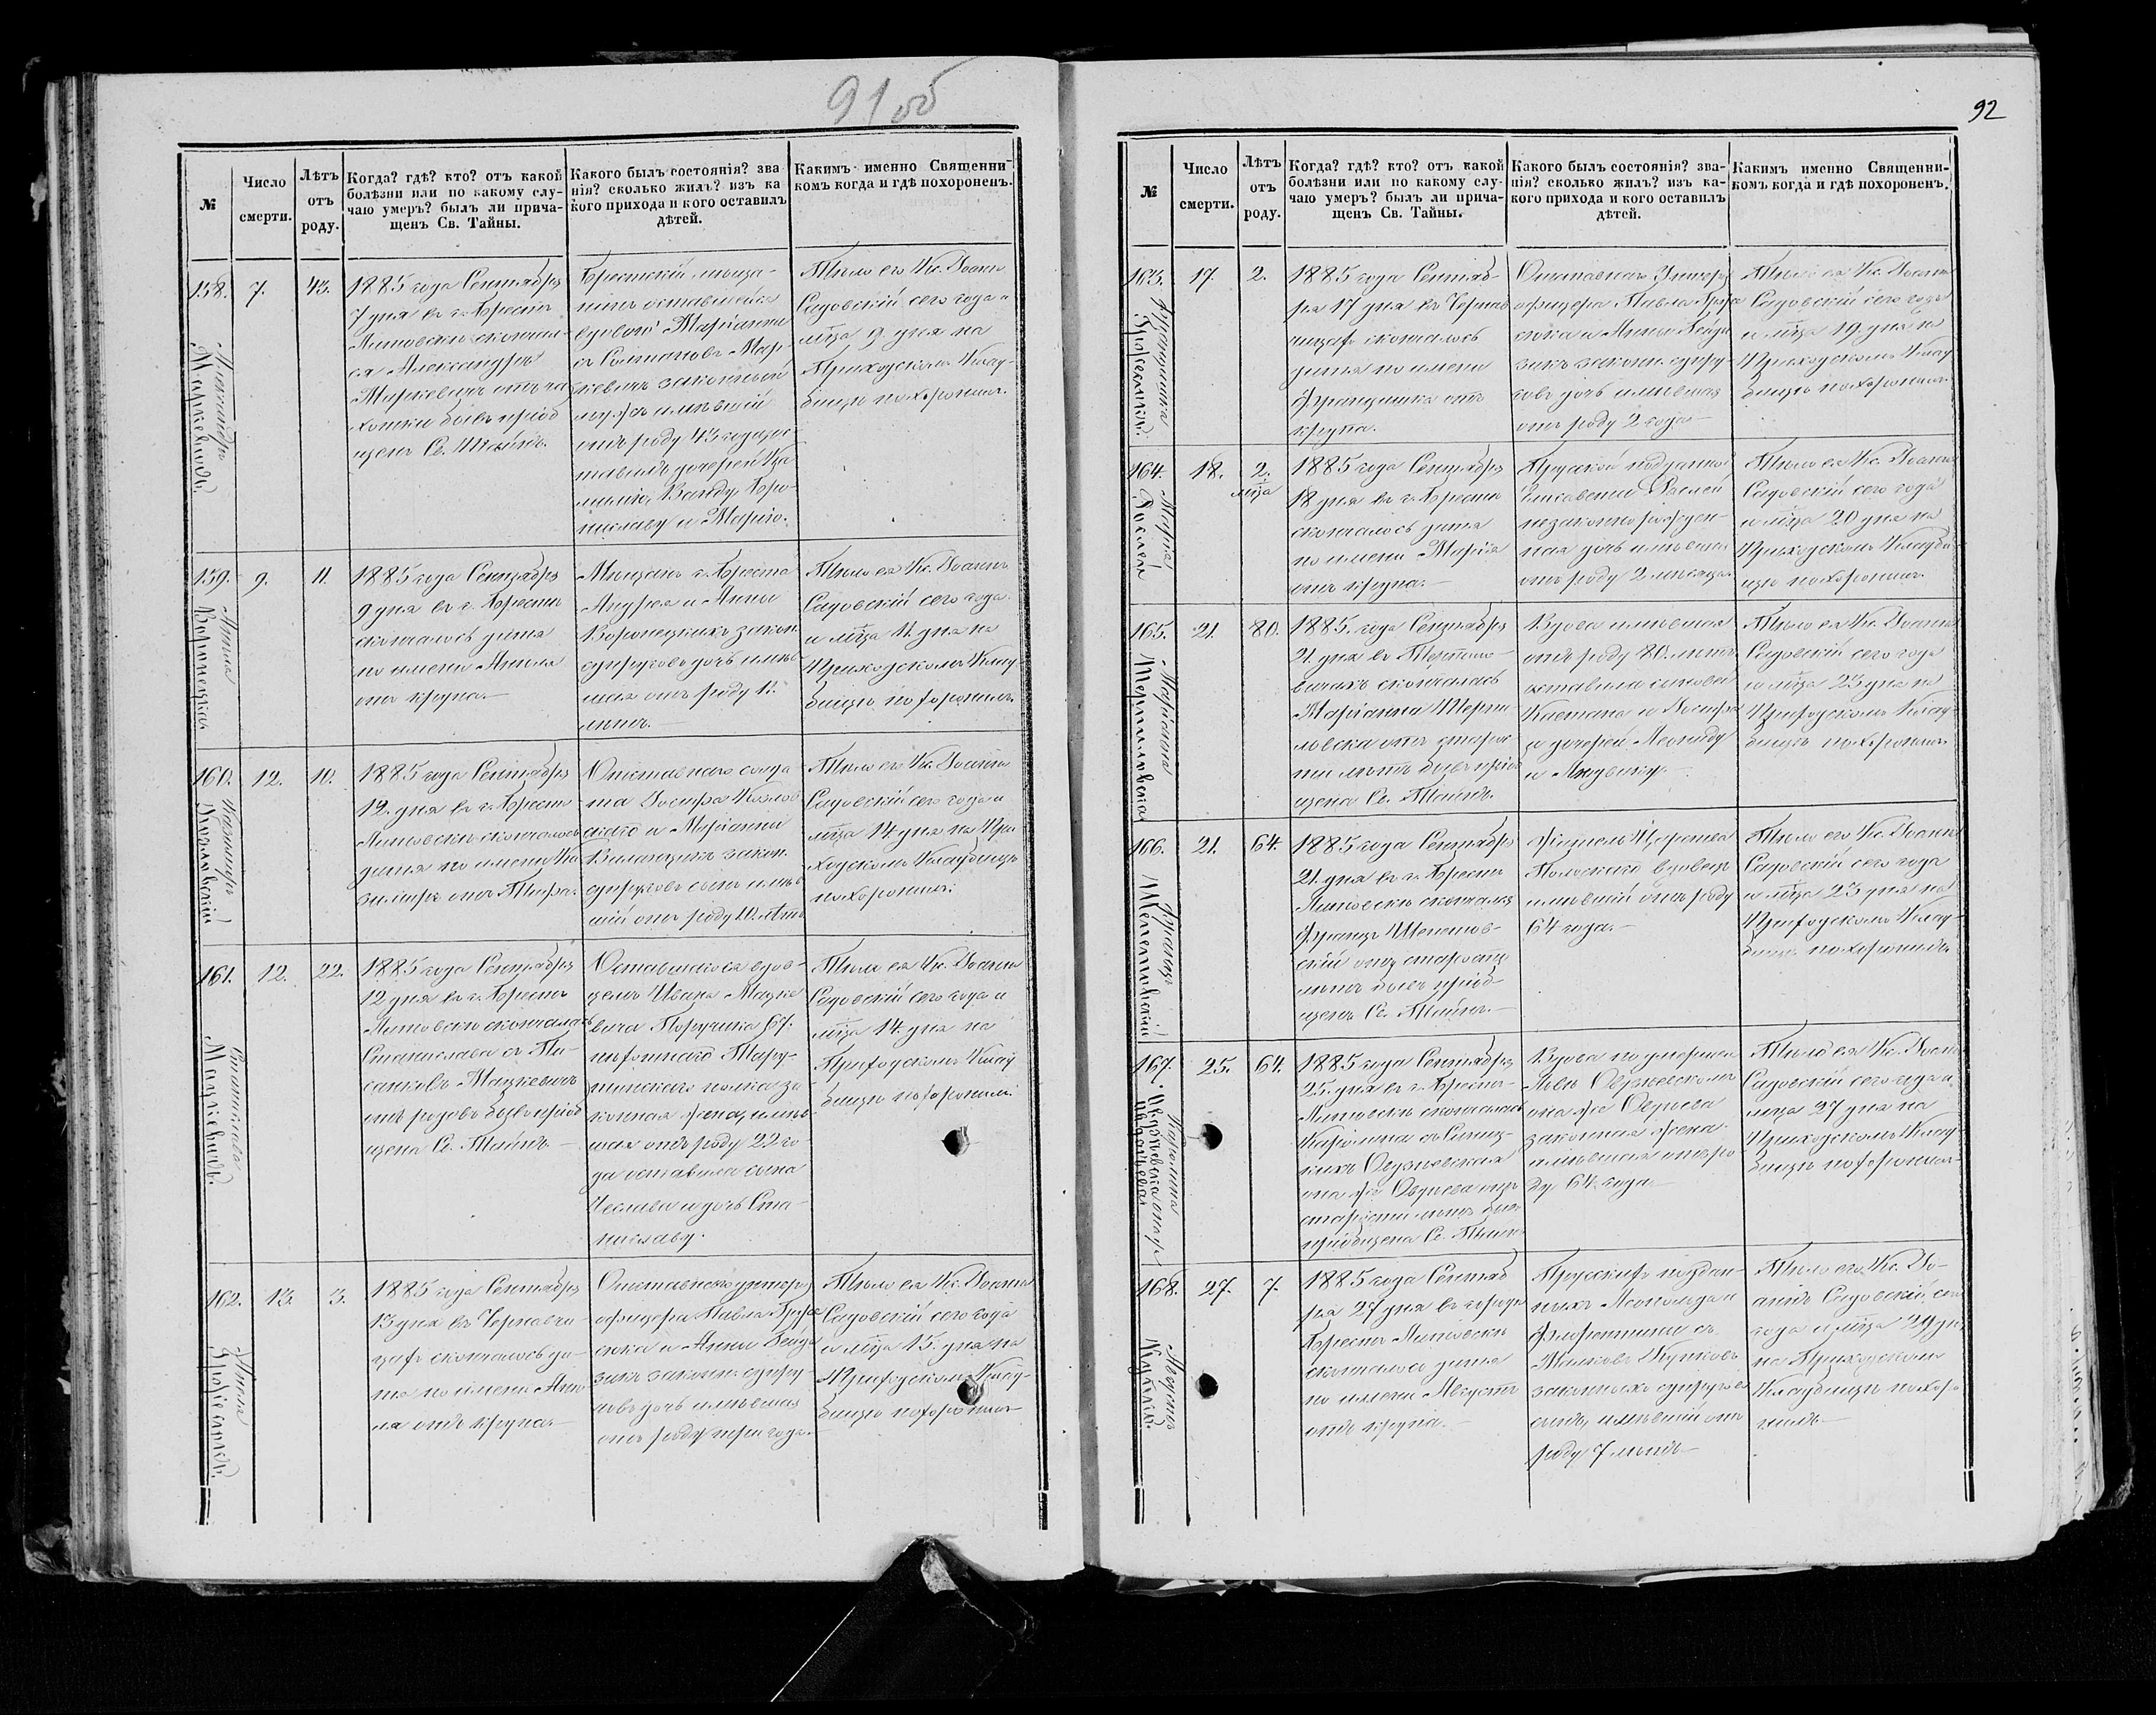 91 об
№
Число
смерти.
Лѣтъ
отъ
роду.
Когда? гдѣ? кто? отъ какой
болѣзни или по какому слу-
чаю умеръ? былъ ли прича-
щенъ Св. Тайны.
Какого былъ состоянія? зва
нія? сколько жилъ? изъ ка
кого прихода и кого оставилъ
дѣтей.
Какимъ именно Священни-
комъ когда и гдѣ похороненъ.
158.
Александръ
Маркевичъ.
7.
43.
1885 года Сентября
7 дня въ г. Брестѣ
Литовскѣ скончал-
ся Александръ
Маркевичъ отъ ча
хотки бывъ пріоб
щенъ Св. Тайнъ.
Брестскій мѣща-
нинъ оставшейся
вдовой Маріанны
съ Солтановъ Мар-
кевичъ законный
мужъ имѣвшій
отъ роду 43 года ос
тавилъ дочерей
Ванду, Бро-
ниславу и Марію.
Тѣло его Кс. Іоаннъ
Садовскій сего года и
мѣсца 9 дня на
Приходскомъ Клад-
бищѣ похоронилъ.
159.
Анеля
Воронецка
9.
11.
1885 года Сентября
9 дня въ г. Брестѣ
скончалось дитя
по имени Анеля
отъ крупа.—
Мѣщанъ г. Бреста
Андрея и Анны
Воронецкихъ закон.
супруговъ дочь имѣв
шая отъ роду 11.
лѣтъ.—
Тѣло ея Кс. Іоаннъ
Садовскій сего года
и мѣсца 11. дня на
Приходскомъ Клад
бищѣ похоронилъ.
160.
Казимиръ
Козловскій
12.
10.
1885 года Сентября
12. дня въ г. Брестѣ
Литовскѣ скончалось
дитя по имени Ка
зимиръ отъ Тифа.
Отставнаго солда
та Іосифа Козлов
скаго и Маріанны
закон.
супруговъ сынъ имѣв
шій отъ роду 10. лѣтъ
Тѣло его Кс. Іоаннъ
Садовскій сего года и
мѣсца 14 дня на При
ходскомъ Кладбищѣ
похоронилъ.
161.
Станислава
Мацкевичъ.
12.
22.
1885 года Сентября
12 дня въ г. Брестѣ
Литовскѣ скончалась
Станислава съ
Мацкевичъ
отъ родовъ бывъ пріоб
щена Св. Тайнъ.—
Оставшагося вдов-
цемъ Ивана Мацке
вича Поручика 67.
пѣхотнаго Тару-
тинскаго полка за
конная жена, имѣв
шая отъ роду 22 го
да оставила сына
Чеслава и дочь Ста-
ниславу.
Тѣло ея Кс. Іоаннъ
Садовскій сего года и
мѣсца 14. дня на
Приходскомъ Клад
бищѣ похоронилъ.
162.
Анеля
13.
3.
1885 года Сентября
13 дня въ Чернавчи
цахъ скончалось ди-
тя по имени Ане
ля отъ крупа.—
Отставнаго унтеръ
офицера Павла
и Анны
законн. супру-
говъ дочь имѣвшая
отъ роду три года.
Тѣло ея Кс. Іоаннъ
Садовскій сего года
и мѣсца 15. дня на
Приходскомъ Клад-
бищѣ похоронилъ
92
№
Число
смерти.
Лѣтъ
отъ
роду.
Когда? гдѣ? кто? отъ какой
болѣзни или по какому слу-
чаю умеръ? былъ ли прича-
щенъ Св. Тайны.
Какого былъ состоянія? зва-
нія? сколько жилъ? изъ ка-
кого прихода и кого оставилъ
дѣтей.
Какимъ именно Священни-
комъ когда и гдѣ похороненъ.
163.
Францишка
17.
2.
1885 года Сентяб-
ря 17 дня въ Чернав
чицахъ скончалось
дитя по имени
Францишка отъ
крупа.
Отставнаго Унтеръ
офицера Павла
и Анны
законн. супру-
говъ дочь имѣвшая
отъ роду 2 года—
Тѣло ея Кс. Іоаннъ
Садовскій сего года
и мѣсца 19. дня на
Приходскомъ Клад
бищѣ похоронилъ.
164.
Марія
18.
2.
мѣсца
1885 года Сентября
18 дня въ г. Брестѣ
скончалось дитя
по имени Марія
отъ крупа.—
Прусской подданной
Елисаветы
незаконнорожден-
ная дочь имѣвшая
отъ роду 2 мѣсяца.
Тѣло ея Кс. Іоаннъ
Садовскій сего года
и мѣсца 20 дня на
Приходскомъ Кладби
щѣ похоронилъ.
165.
Маріанна
21.
80.
1885. года Сентября
21. дня въ
скончалась
Маріанна
отъ старос
ти лѣтъ бывъ пріоб
щена Св. Тайнъ.
Вдова имѣвшая
отъ роду 80. лѣтъ
оставила сыновей
Каетана и Іосифа
и дочерей Леониду
и Людвику.
Тѣло ея Кс. Іоаннъ
Садовскій сего года
и мѣсца 23 дня на
Приходскомъ Клад-
бищѣ похоронилъ.
166.
Францъ
Шепетовскій
21.
64.
1885 года Сентября
21. дня въ г. Брестѣ
Литовскѣ скончался
Францъ Шепетов-
скій отъ старости
лѣтъ бывъ пріоб-
щенъ Св. Тайнъ.—
Житель Царства
Польскаго вдовецъ
имѣвшій отъ роду
64 года.—
Тѣло его Кс. Іоаннъ
Садовскій сего года
и мѣсца 23 дня на
Приходскомъ Клад-
бищѣ похоронилъ
167.
Каролина
25.
64.
1885 года Сентября
25. дня въ г. Брестѣ-
Литовскѣ скончалась
Каролина
она же отъ
старости лѣтъ бывъ
пріобщена Св. Тайнъ.
Вдова по умершемъ
она же
законная жена
имѣвшая отъ ро
ду 64 года—
Тѣло ея Кс. Іоаннъ
Садовскій сего года и
мѣсца 27 дня на
Приходскомъ Клад-
бищѣ похоронилъ
168.
Августъ
27.
7.
1885 года Сентяб
ря 27 дня въ городѣ
Брестѣ Литовскѣ
скончалось дитя
по имени Августъ
отъ крупа.—
Прусскихъ поддан-
ныхъ Леопольда и
Флорентины съ
законныхъ супруговъ
сынъ, имѣвшій отъ
роду 7 лѣтъ—
Тѣло его Кс. Іо-
аннъ Садовскій сего
года и мѣсца 29 дня
на Приходскомъ
Кладбищѣ похоро
нилъ—